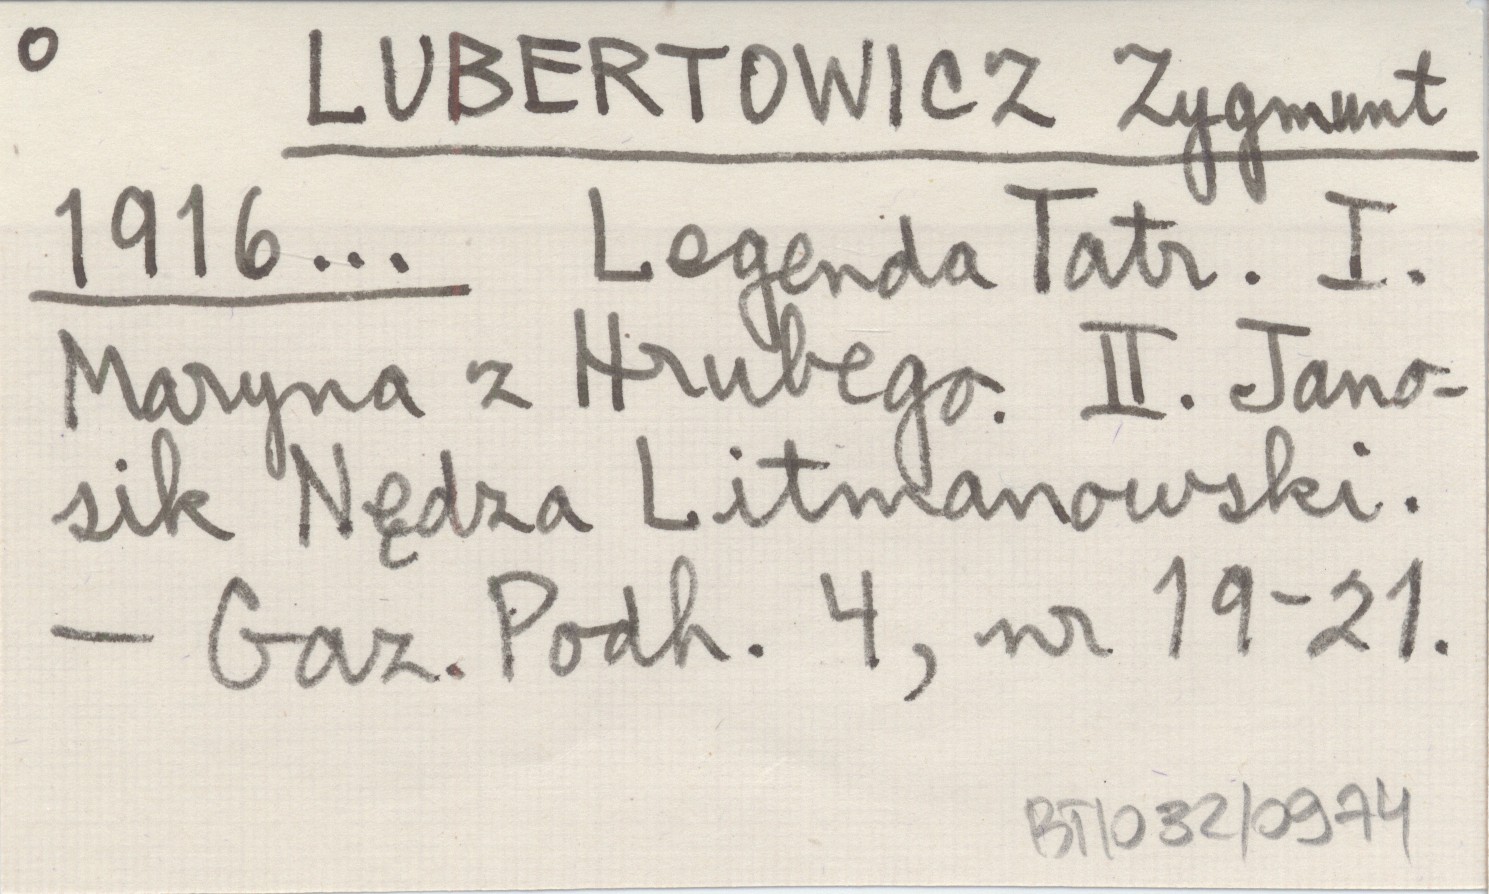 o LUBERTOWICZ Zygmunt
1916... Legenda Tatr. I.
Maryna z Hrubego. II. Jano-
sik Nędza Litmanowski.
— Gaz. Podh. 4, nr 19-21.
BT/032/0974